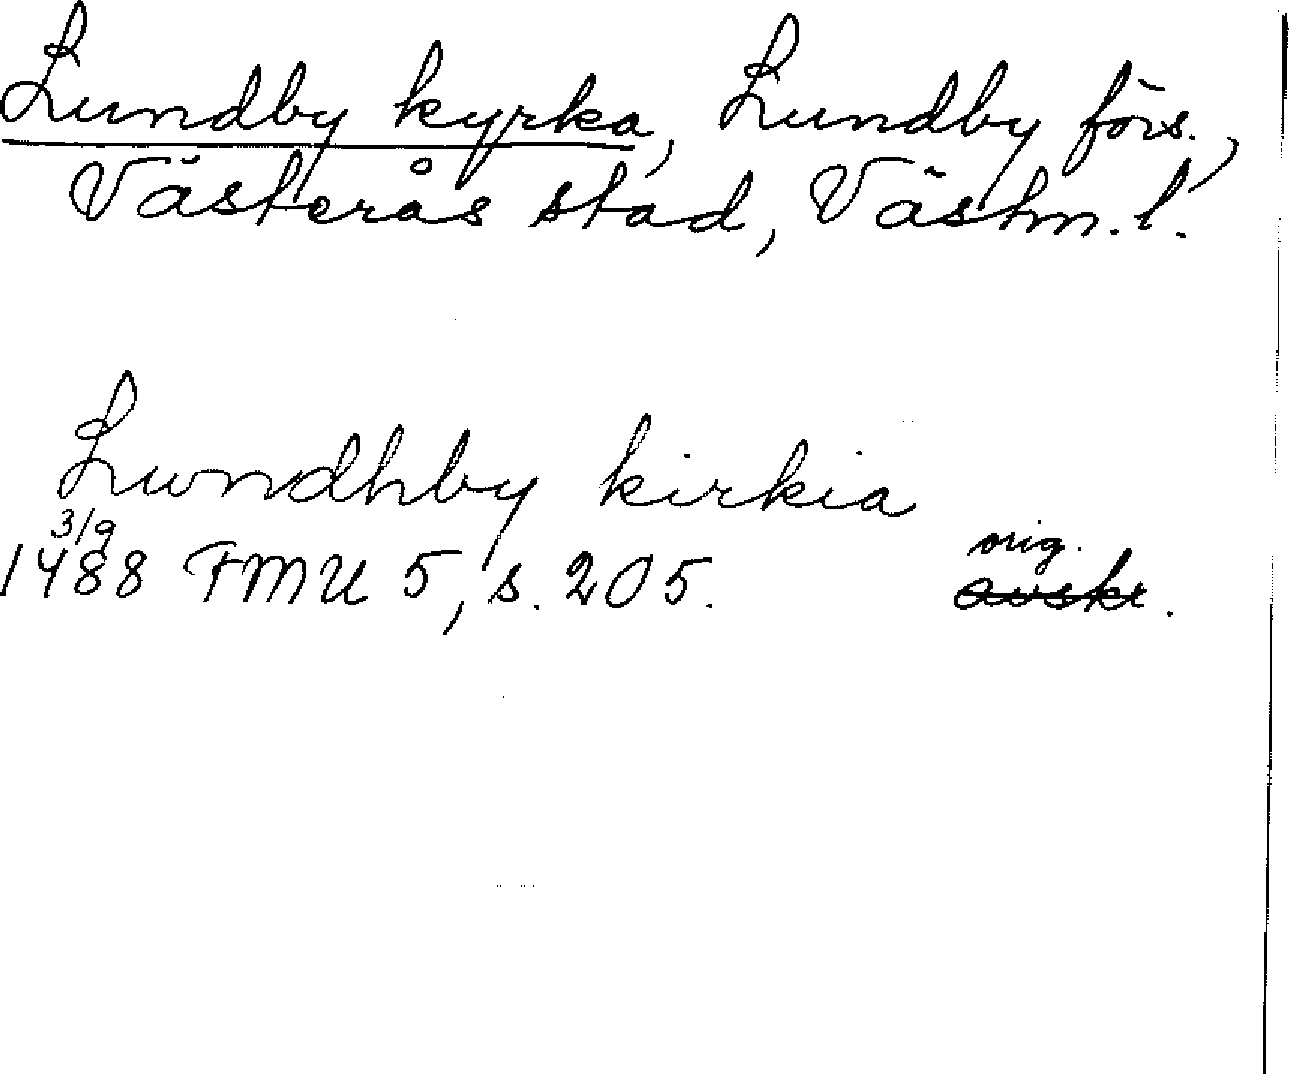 Lundby kyrka, Lundby förs.,
Västerås stad, Västm. l.
Lwndhby kirkia
3/9
orig.
1488 FMU 5, s. 205. avskr.